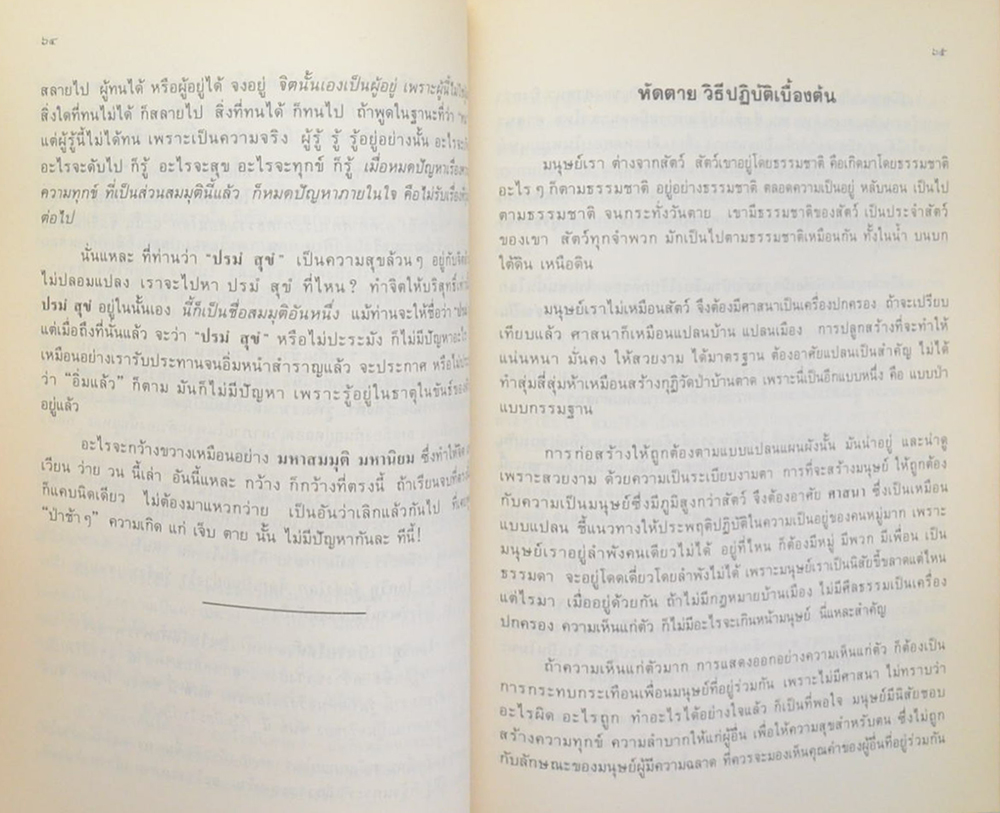 ๖๔
สลายไป ผู้ทนได้ หรือผู้อยู่ได้ จงอยู่ จิตนั้นเองเป็นผู้อยู่ เพราะผู้นี้ไม่ใช่
สิ่งใดที่ทนไม่ได้ ก็สลายไป สิ่งที่ทนได้ ก็ทนไป ถ้าพูดในฐานะที่ว่า
แต่ผู้รู้นี้ไม่ได้ทน เพราะเป็นความจริง ผู้รู้ รู้ รู้อยู่อย่างนั้น อะไรจะ
อะไรจะดับไป ก็รู้ อะไรจะสุข อะไรจะทุกข์ ก็รู้ เมื่อหมดปัญหาเรื่อง
ความทุกข์ ที่เป็นส่วนสมมุตินี้แล้ว ก็หมดปัญหาภายในใจ คือไม่รับเรื่อง
ต่อไป
นั่นแหละ ที่ท่านว่า "ปรมํ สุขํ" เป็นความสุขล้วนๆ อยู่กับจิต
ไม่ปลอมแปลง เราจะไปหา ปรมํ สุขํ ที่ไหน? ทำจิตให้บริสุทธิ์
ปรมํ สุขํ อยู่ในนั้นเอง นี้ก็เป็นชื่อสมมุติอันหนึ่ง แม้ท่านจะให้ชื่อว่า
แต่เมื่อถึงที่นั้นแล้ว จะว่า "ปรมํ สุขํ" หรือไม่ปะระมัง ก็ไม่มีปัญหา
เหมือนอย่างเรารับประทานจนอิ่มหนำสำราญแล้ว จะประกาศ หรือไม่
ว่า "อิ่มแล้ว" ก็ตาม มันก็ไม่มีปัญหา เพราะรู้อยู่ในธาตุในขันธ์
อยู่แล้ว
อะไรจะกว้างขวางเหมือนอย่าง มหาสมมุติ มหานิยม ซึ่งทำให้จิต
เวียน ว่าย วน นี้เล่า อันนี้แหละ กว้าง ก็กว้างที่ตรงนี้ ถ้าเรียนจบที่
ก็แคบนิดเดียว ไม่ต้องมาแหวกว่าย เป็นอันว่าเลิกแล้วกันไป
"ป่าช้าๆ" ความเกิด แก่ เจ็บ ตาย นั้น ไม่มีปัญหากันละ ทีนี้!
๖๕
หัดตาย วิธีปฏิบัติเบื้องต้น
มนุษย์เรา ต่างจากสัตว์ สัตว์เขาอยู่โดยธรรมชาติ คือเกิดมาโดยธรรมชาติ
อะไรๆ ก็ตามธรรมชาติ อยู่อย่างธรรมชาติ ตลอดความเป็นอยู่ หลับนอน เป็นไป
ตามธรรมชาติ จนกระทั่งวันตาย เขามีธรรมชาติของสัตว์ เป็นประจำสัตว์
ของเขา สัตว์ทุกจำพวก มักเป็นไปตามธรรมชาติเหมือนกัน ทั้งในน้ำ บนบก
ใต้ดิน เหนือดิน
มนุษย์เราไม่เหมือนสัตว์ จึงต้องมีศาสนาเป็นเครื่องปกครอง ถ้าจะเปรียบ
เทียบแล้ว ศาสนาก็เหมือนแปลนบ้าน แปลนเมือง การปลูกสร้างที่จะทำให้
แน่นหนา มั่นคง ให้สวยงาม ได้มาตรฐาน ต้องอาศัยแปลนเป็นสำคัญ ไม่ได้
ทำสุ่มสี่สุ่มห้าเหมือนสร้างกุฏิวัดป่าบ้านตาด เพราะนี่เป็นอีกแบบหนึ่ง คือ แบบป่า
แบบกรรมฐาน
การก่อสร้างให้ถูกต้องตามแบบแปลนแผนผังนั้น มันน่าอยู่ และน่าดู
เพราะสวยงาม ด้วยความเป็นระเบียบงามตา การที่จะสร้างมนุษย์ ให้ถูกต้อง
กับความเป็นมนุษย์ซึ่งมีภูมิสูงกว่าสัตว์ จึงต้องอาศัย ศาสนา ซึ่งเป็นเหมือน
แบบแปลน ชี้แนวทางให้ประพฤติปฏิบัติในความเป็นอยู่ของคนหมู่มาก เพราะ
มนุษย์เราอยู่ลำพังคนเดียวไม่ได้ อยู่ที่ไหน ก็ต้องมีหมู่ มีพวก มีเพื่อน เป็น
ธรรมดา จะอยู่โดดเดี่ยวโดยลำพังไม่ได้ เพราะมนุษย์เราเป็นนิสัยขี้ขลาดแต่ไหน
แต่ไรมา เมื่ออยู่ด้วยกัน ถ้าไม่มีกฎหมายบ้านเมือง ไม่มีศีลธรรมเป็นเครื่อง
ปกครอง ความเห็นแก่ตัว ก็ไม่มีอะไรจะเกินหน้ามนุษย์ นี่แหละสำคัญ
ถ้าความเห็นแก่ตัวมาก การแสดงออกอย่างความเห็นแก่ตัว ก็ต้องเป็น
การกระทบกระเทือนเพื่อนมนุษย์ที่อยู่ร่วมกัน เพราะไม่มีศาสนา ไม่ทราบว่า
อะไรผิด อะไรถูก ทำอะไรได้อย่างใจแล้ว ก็เป็นที่พอใจ มนุษย์มีนิสัยชอบ
สร้างความทุกข์ ความลำบากให้แก่ผู้อื่น เพื่อให้ความสุขสำหรับตน ซึ่งไม่ถูก
กับลักษณะของมนุษย์ผู้มีความฉลาด ที่ควรจะมองเห็นคุณค่าของผู้อื่นที่อยู่ร่วมกัน